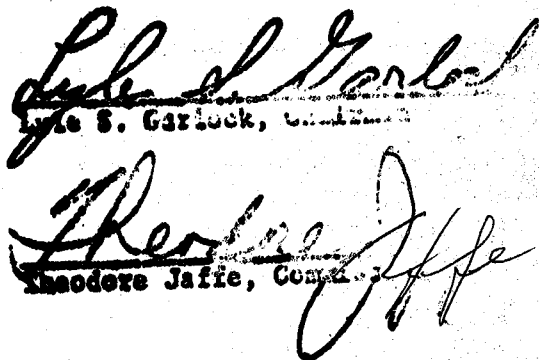 Lyle S Garlock
Lyle S. Garlock, Chairman
Theodore Jaffe
Theodore Jaffe, Commis